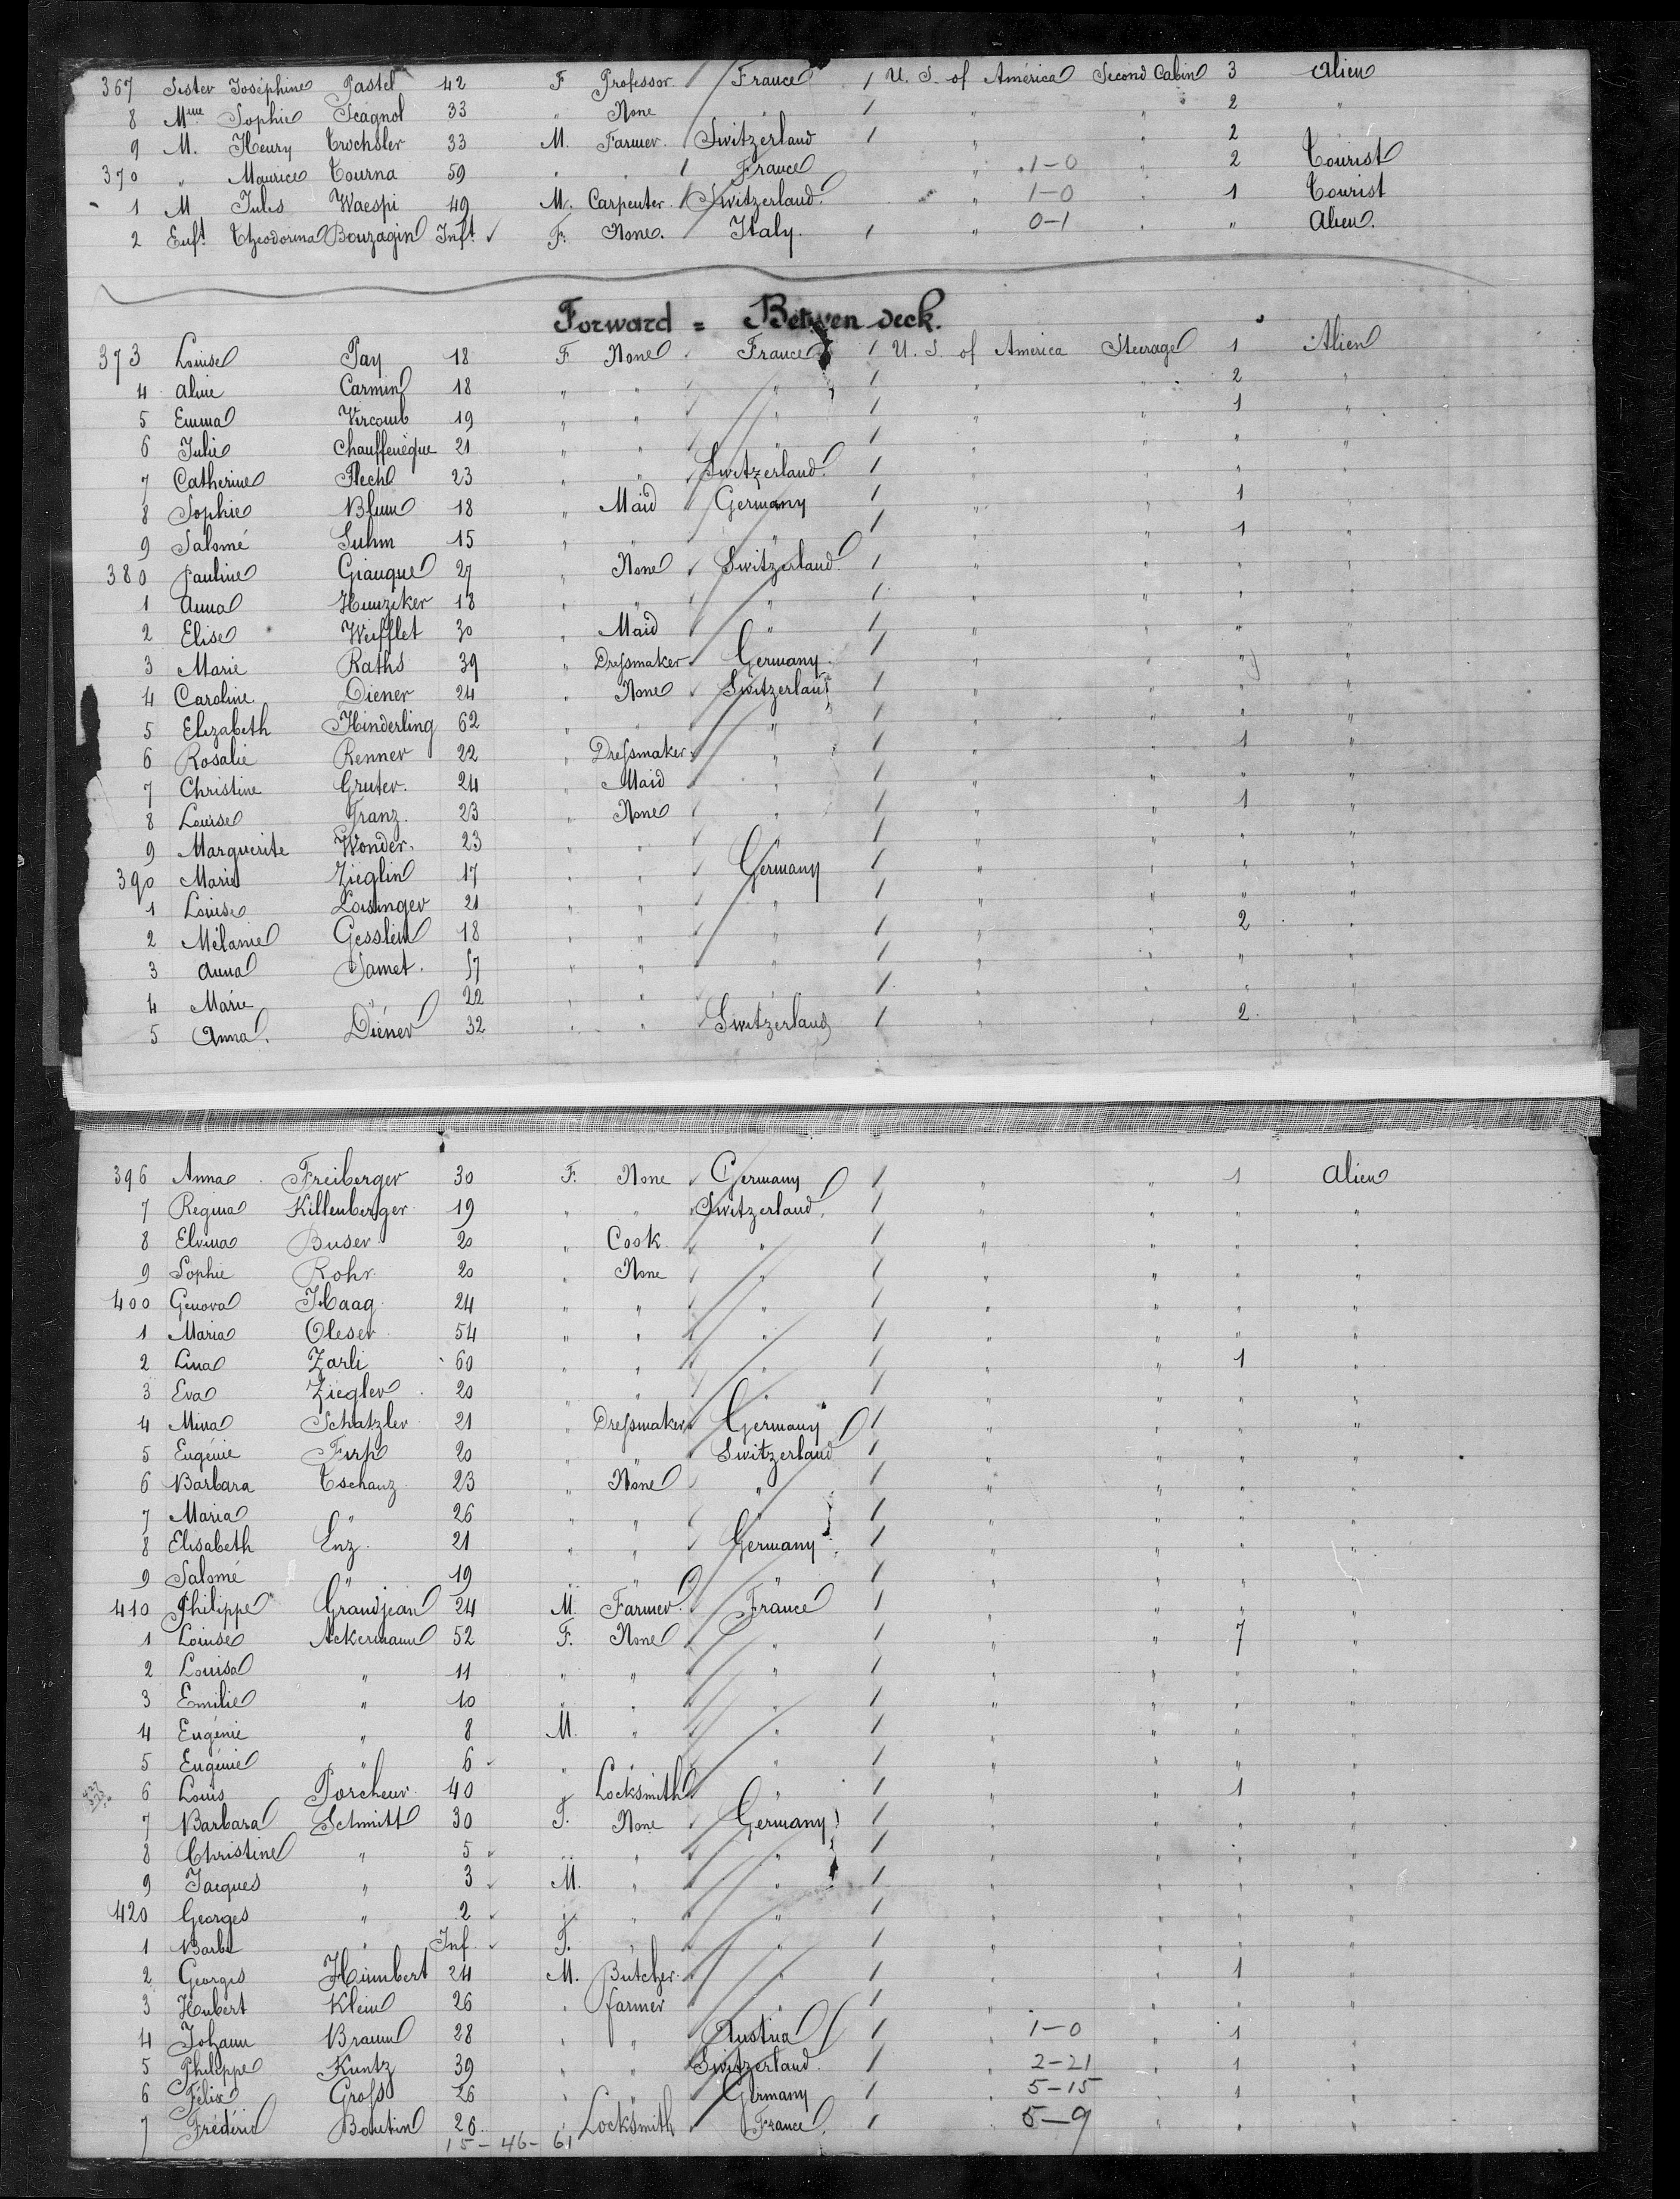 367 Sister Joséphine Pastel 42 F Professor. France / U. S. of América Second Cabin 3 Alien
8 Mme Sophie Scagnol 33 " None " / " " 2 "
9 M. Henry Trochsler 33 M. Farmer. Switzerland / " " 2
370 " Maurice Tourna 59 " " / France " 1-0 " 2 Tourist
1 M Jules Waespi 49 M. Carpenter. / Switzerland. " 1-0 " 1 Tourist
2 Enft Theodorina Bouzagin Inft ✓ F. None. Italy. / " 0-1 " " Alien.
Forward = Betwen deck.
373 Louise Pay 18 F None France / U. S. of America Steerage 1 Alien
4 Aline Carmin 18 " " " / " " 2 "
5 Emma Vircomb 19 " " " / " " 1 "
6 Julie Chauffenèque 21 " " " / " " " "
7 Catherine Plech 23 " " Switzerland. / " " " "
8 Sophie Blum 18 " Maid Germany / " " 1 "
9 Salomé Suhm 15 " " " / " " 1 "
380 Pauline Giauque 27 " None Switzerland / " " " "
1 Anna Hunziker 18 " " " / " " " "
2 Elise Weifflet 30 " Maid " / " " " "
3 Marie Raths 39 " Dressmaker Germany. / " " " "
4 Caroline Diener 24 " None Switzerland / " " " "
5 Elizabeth Hinderling 62 " " " / " " " "
6 Rosalie Renner 22 " Dressmaker " / " " 1 "
7 Christine Gruter. 24 " Maid " / " " " "
8 Louise Franz. 23 " None " / " " 1 "
9 Marguerite Wonder. 23 " " " / " " " "
390 Marie Zieglin 17 " " Germany / " " " "
1 Louise Losinger 21 " " " / " " " "
2 Mélanie Gesslein 18 " " " / " " 2 "
3 Anna Samet. 17 " " " / " " " "
4 Marie " 22 " " " / " " " "
5 Anna. Diéner 32 " " Switzerland / " " 2 "
396 Anna Freiberger 30 F. None Germany / " " 1 Alien
7 Regina Killenberger 19 " " Switzerland. / " " " "
8 Elvina Buser 20 " Cook. " / " " " "
9 Sophie Rohr. 20 " None " / " " " "
400 Genova Haag 24 " " " / " " " "
1 Maria Oleser 54 " " " / " " " "
2 Lina Zarli 60 " " " / " " 1 "
3 Eva Ziegler 20 " " " / " " " "
4 Mina Schatzler 21 " Dressmaker Germany / " " " "
5 Eugénie 20 " " Switzerland / " " " "
6 Barbara Tschanz 23 " None " / " " " "
7 Maria " 26 " " " / " " " "
8 Elisabeth Enz. 21 " " Germany / " " " "
9 Salomé " 19 " " " / " " " "
410 Philippe Grandjean 24 M. Farmer. France / " " " "
1 Louise Ackermann 52 F. None " / " " 7 "
2 Louisa " 11 " " " / " " " "
3 Emilie " 10 " " " / " " " "
4 Eugénie " 8 M. " " / " " " "
5 Eugénie " 6 " " " / " " " "
6 Louis Porcheur 40 " Locksmith " / " " 1 "
7 Barbara Schmitt 30 F. None Germany / " " " "
8 Christine " 5 " " " / " " " "
9 Jacques " 3 M. " " / " " " "
420 Georges " 2 " " " / " " " "
1 Barbe " Inf F. " " / " " " "
2 Georges Humbert 24 M. Butcher. " / " " 1 "
3 Hubert Klein 26 " farmer " / " " " "
4 Johann Braun 28 " " Austria / " 1-0 " 1 "
5 Philippe Kuntz 39 " " Switzerland. / " 2-21 " 1 "
6 Félix Gross 26 " " Germany / " 5-15 " 1 "
7 Frédéric Boutin 26 " Locksmith France / " 5-9 " " "
15-46-61